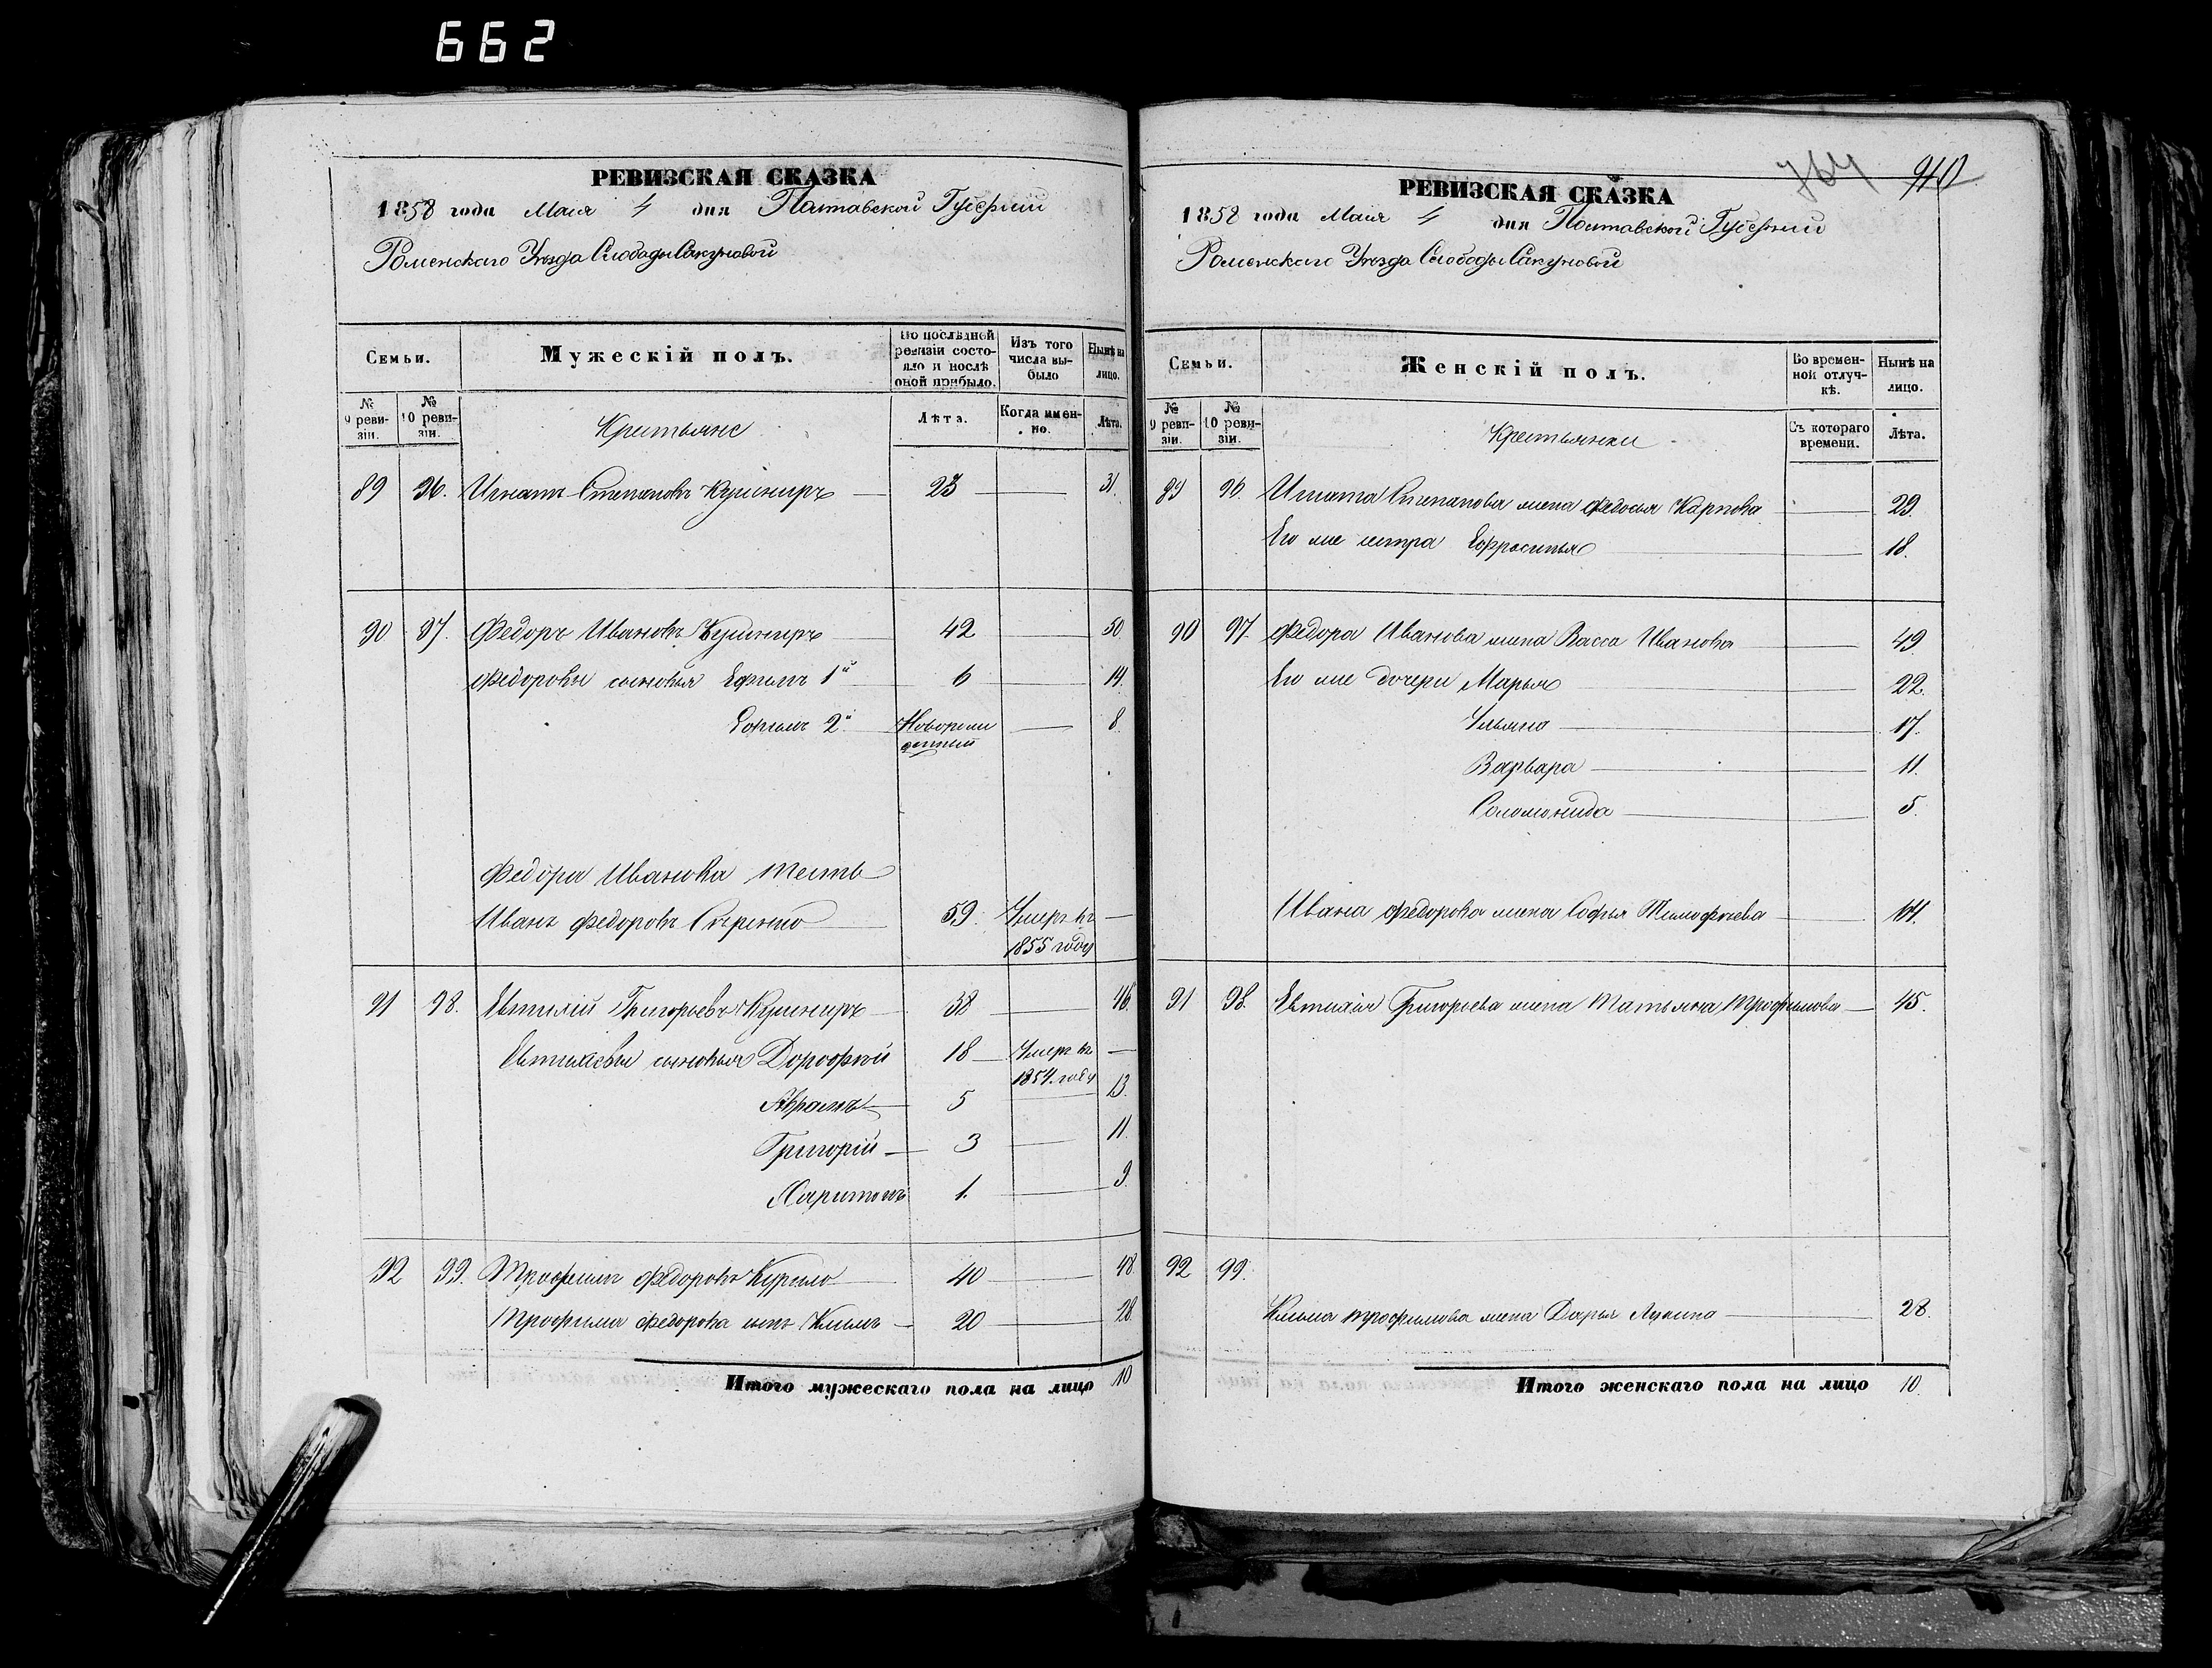 662
РЕВИЗСКАЯ СКАЗКА
1858 года Мая 4 дня Полтавской Губернии
Роменскаго Уезда Слободы Сакуновой
Семьи.
Мужескiй полъ.
Во послѣдней ревизiи состояло и послѣ оной прибыло.
Изъ того числа выбыло
Нынѣ на лицо.
№ 9 ревизiи.
№ 10 ревизiи.
Крестьяне
Лѣта.
Когда именно.
Лѣта.
89 96. Игнатъ Степановъ Кушниръ 23 31.
90 97. Федоръ Ивановъ Кушниръ 42 50.
Федоровы сыновья Ефимъ 1й 6 14.
Ефимъ 2й Новорожденный 8.
Федора Иванова тесть
Иванъ Федоровъ 59. Умеръ въ 1855 году
91 98. Евтихiй Григорьевъ Кушниръ 38 46.
Евтихiевы сыновья Дорофей 18 Умеръ въ 1854 году
Абрамъ 5 13.
Григорiй 3 11.
Харитонъ 1. 9.
92 99. Трофимъ Федоровъ Курило 40 48
Трофима Федорова сынъ Климъ 20 28.
Итого мужескаго пола на лицо 10
764 940
РЕВИЗСКАЯ СКАЗКА
1858 года Мая 4 дня Полтавской Губернии
Роменскаго Уезда Слободы Сакуновой
Семьи.
Женскiй полъ.
Во временной отлучкѣ.
Нынѣ на лицо.
№ 9 ревизiи.
№ 10 ревизiи.
Крестьянки
Съ котораго времени.
Лѣта.
89 96. Игната Степанова жена Федосья Карпова 29.
Его же сестра Ефросинья 18.
90 97. Федора Иванова жена Васса Иванова 49
Его же дочери Марья 22.
Ульяна 17.
Варвара 11.
Соломонида 5.
Ивана Федорова жена Софья Тимофеева 64.
91 98. Евтихiя Григорьева жена Татьяна Трофимова 45.
92 99.
Клима Трофимова жена Дарья 28.
Итого женскаго пола на лицо 10.